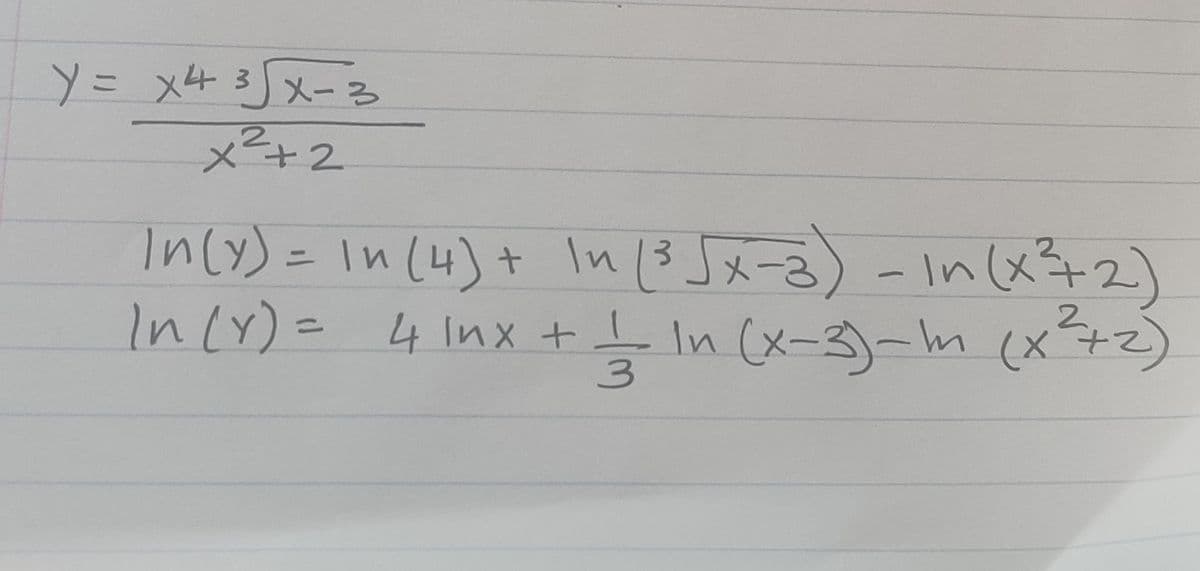 y = x4 3√x-3
x²+2
ln(y) = ln(4) + ln(3√x-3) - ln(x²+2)
ln(y) = 4 lnx + 1/3 ln (x-3) - ln (x²+2)